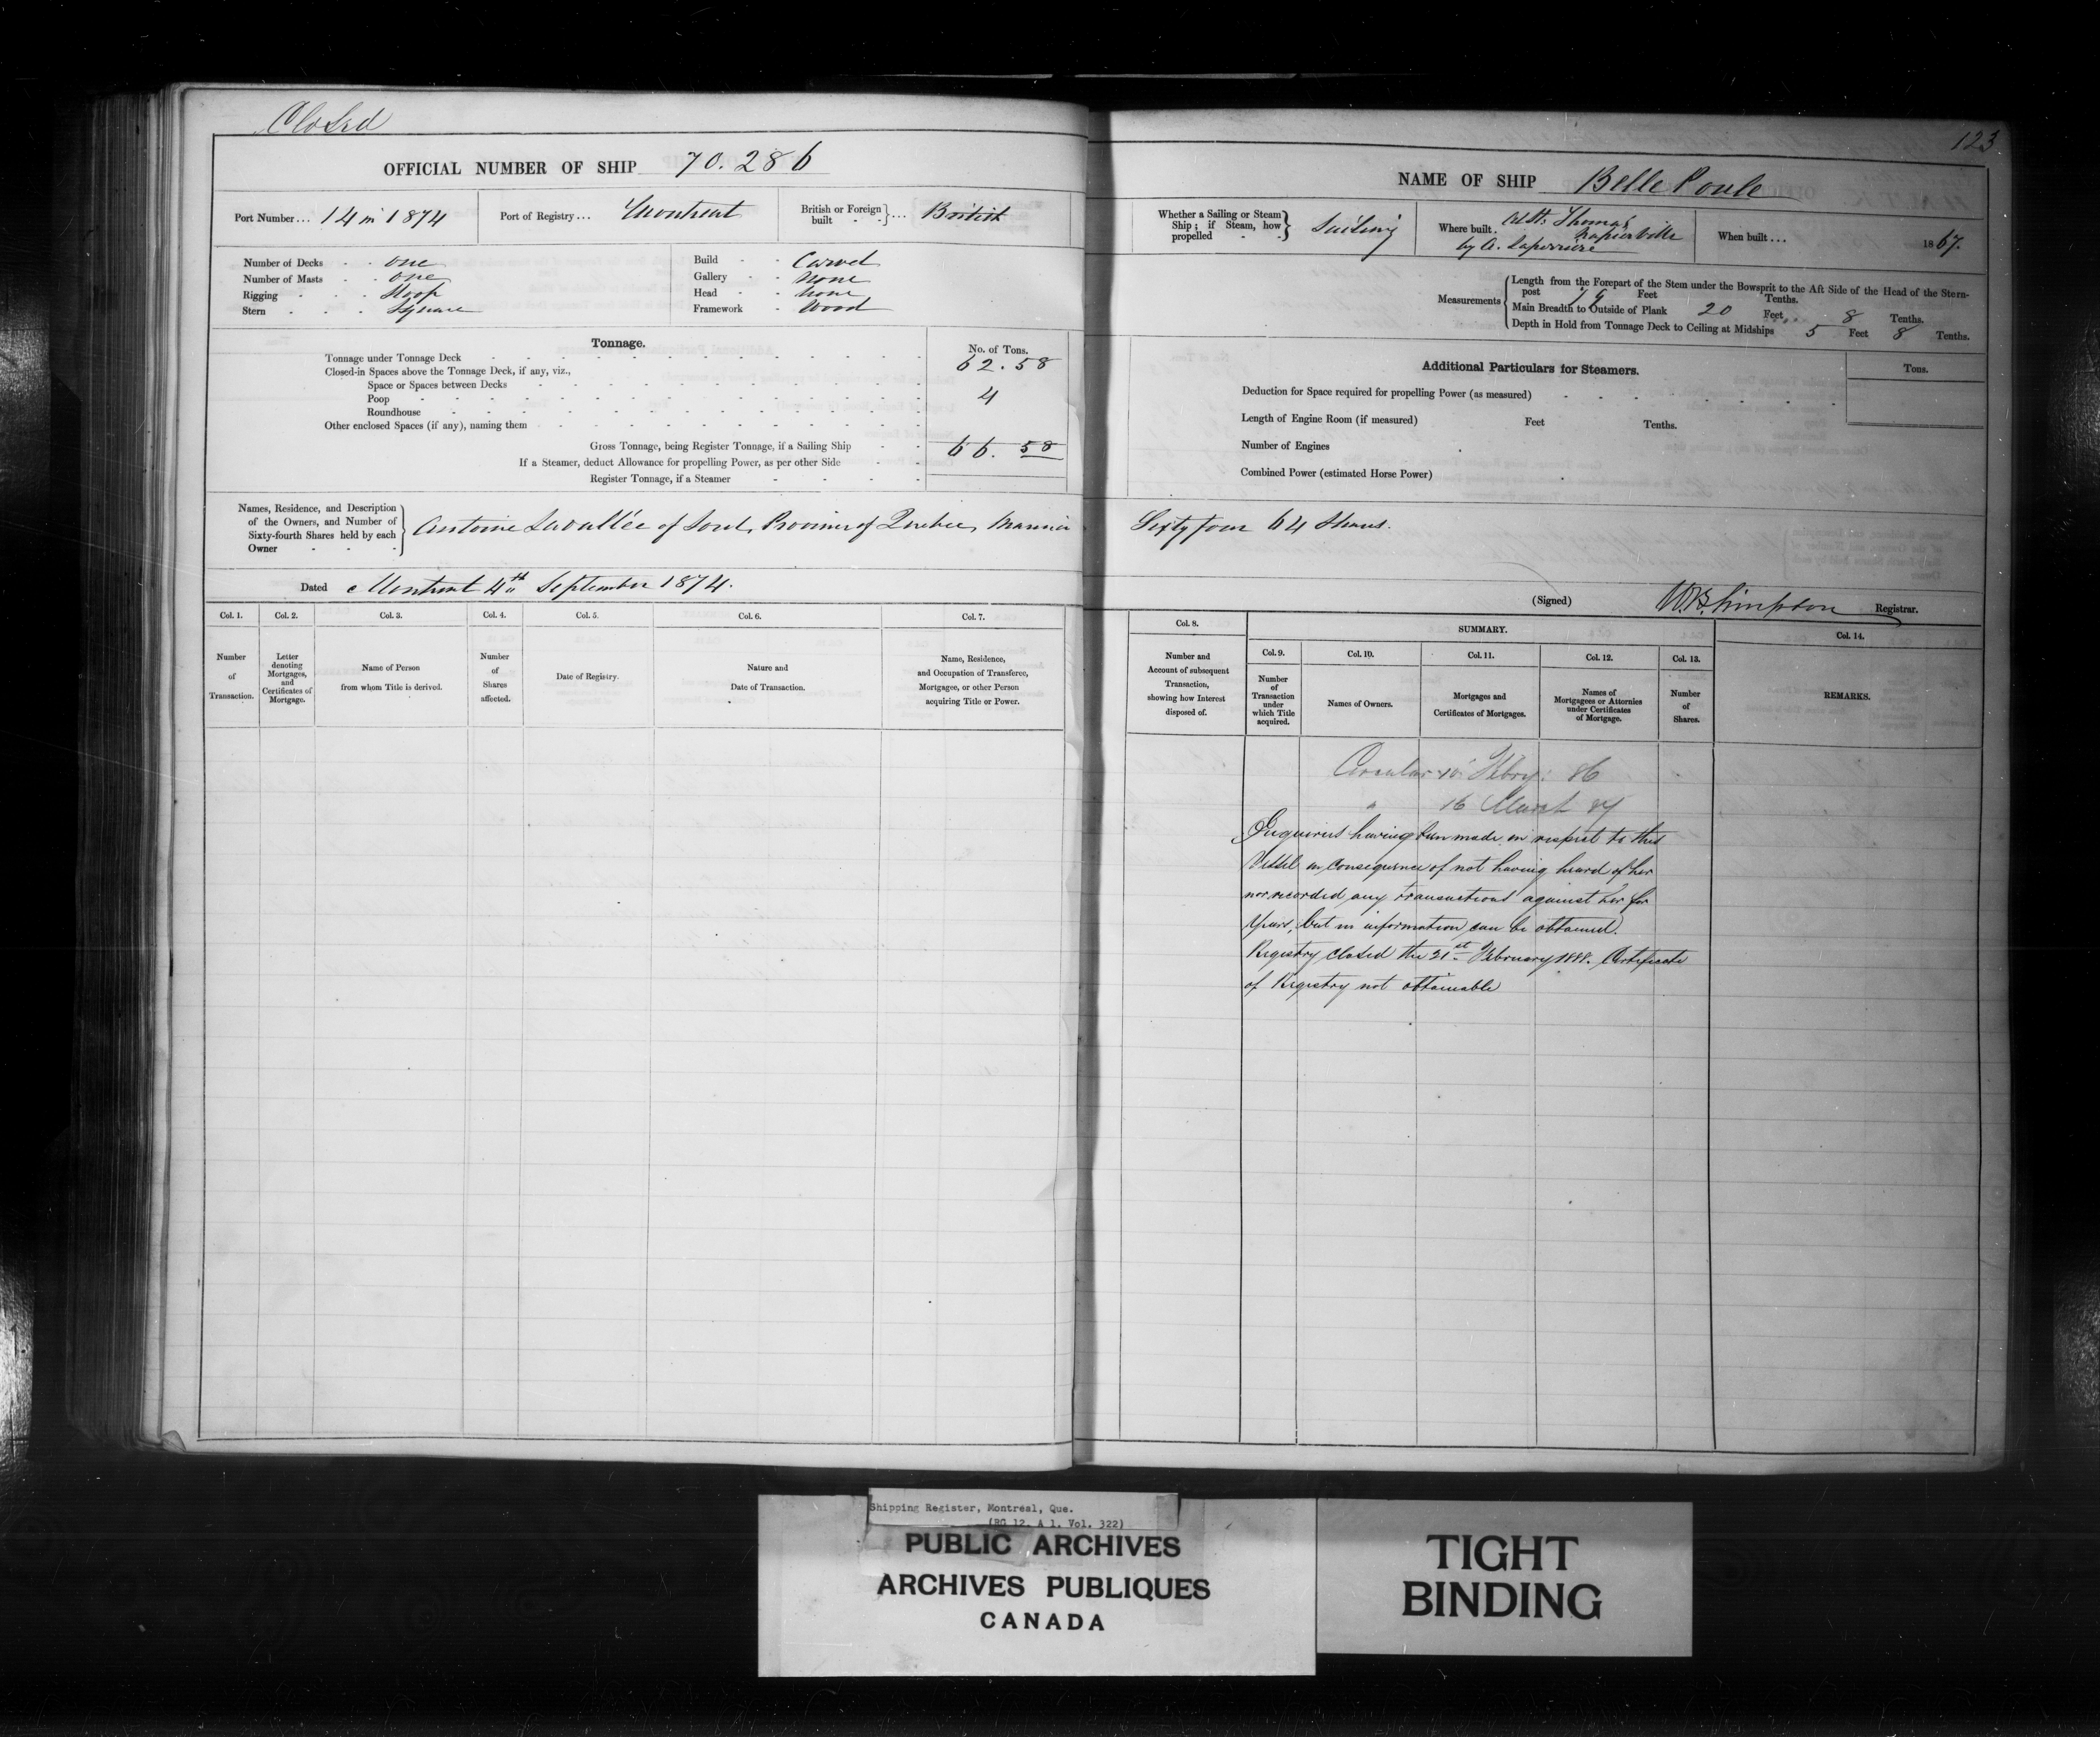 Closed
OFFICIAL NUMBER OF SHIP 70.286
Port Number... 14 in 1874 Port of Registry... Montreal British or Foreign built ... British
Number of Decks - - one
Number of Masts - - one
Rigging - - - Sloop
Stern - - - Square
Build - - Carvel
Gallery - - None
Head - - None
Framework - Wood
Tonnage. No. of Tons.
Tonnage under Tonnage Deck 62.58
Closed-in Spaces above the Tonnage Deck, if any, viz.,
Space or Spaces between Decks
Poop 4
Roundhouse
Other enclosed Spaces (if any), naming them
Gross Tonnage, being Register Tonnage, if a Sailing Ship 66.58
If a Steamer, deduct Allowance for propelling Power, as per other Side
Register Tonnage, if a Steamer
Names, Residence, and Description
of the Owners, and Number of
Sixty-fourth Shares held by each
Owner
Antoine Lavallée of Sorel, Province of Quebec, Mariner
Dated Montreal 4th September 1874.
Col. 1. Col. 2. Col. 3. Col. 4. Col. 5. Col. 6. Col. 7.
Number of Transaction.
Letter denoting Mortgages, and Certificates of Mortgage.
Name of Person from whom Title is derived.
Number of Shares affected.
Date of Registry.
Nature and Date of Transaction.
Name, Residence, and Occupation of Transferee, Mortgagee, or other Person acquiring Title or Power.
123
NAME OF SHIP Belle Poule
Whether a Sailing or Steam Ship; if Steam, how propelled Sailing
Where built. At St. Thomas Napierville
by A. Laperriere
When built... 1867.
Measurements
Length from the Forepart of the Stem under the Bowsprit to the Aft Side of the Head of the Stern-
post 79 Feet Tenths.
Main Breadth to Outside of Plank 20 Feet 8 Tenths.
Depth in Hold from Tonnage Deck to Ceiling at Midships 5 Feet 8 Tenths.
Additional Particulars for Steamers. Tons.
Deduction for Space required for propelling Power (as measured)
Length of Engine Room (if measured) Feet Tenths.
Number of Engines
Combined Power (estimated Horse Power)
Sixty four 64 Shares.
(Signed) W.B. Simpson Registrar.
Col. 8. SUMMARY. Col. 14.
Col. 9. Col. 10. Col. 11. Col. 12. Col. 13.
Number and Account of subsequent Transaction, showing how Interest disposed of.
Number of Transaction under which Title acquired.
Names of Owners.
Mortgages and Certificates of Mortgages.
Names of Mortgagees or Attornies under Certificates of Mortgage.
Number of Shares.
REMARKS.
Circular 10 Febry: 86
" 16 March 87
Enquiries having been made in respect to this
Vessel in consequence of not having heard of her
nor recorded any transactions against her for
years, but no information can be obtained.
Registry closed the 21st February 1888. Certificate
of Registry not obtainable
Shipping Register, Montreal, Que.
(RG 12, A 1, Vol. 322)
PUBLIC ARCHIVES
ARCHIVES PUBLIQUES
CANADA
TIGHT
BINDING